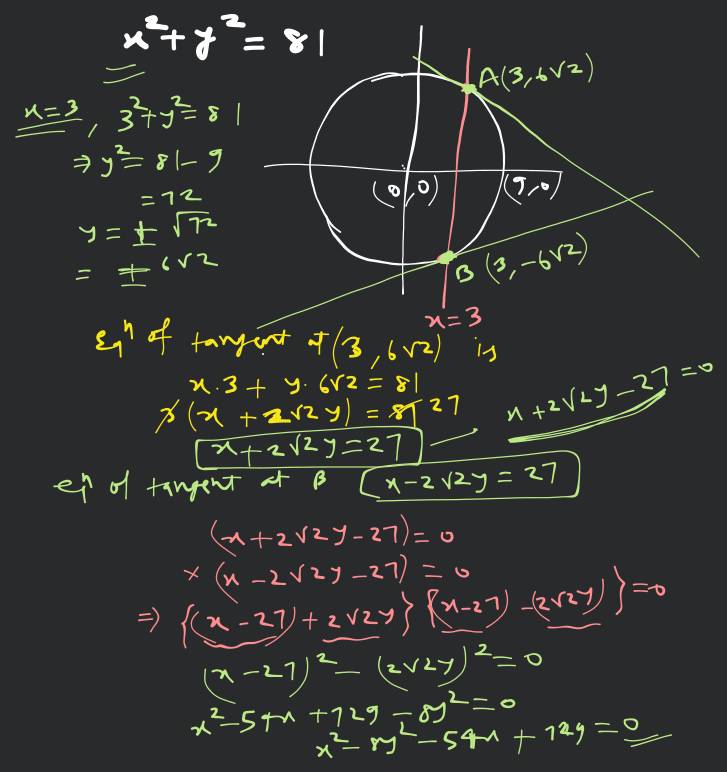 x² + y² = 81
x=3, 3²+y²= 81
⇒ y² = 81 - 9
= 72
y = ± √72
= ± 6√2
A(3,6√2)
(0,0)
(9,0)
B (3,-6√2)
x=3
Eqⁿ of tangent at (3,6√2) is
x.3 + y.6√2 = 81
3(x + 2√2y) = 81 27
x+2√2y=27
x+2√2y-27=0
eqⁿ of tangent at B x-2√2y = 27
(x+2√2y-27)= 0
× (x-2√2y-27) = 0
⇒ {(x-27)+2√2y} {(x-27)-(2√2y)}=0
(x-27)² - (2√2y)² = 0
x²-54x+729-8y²=0
x²-8y²-54x+729=0